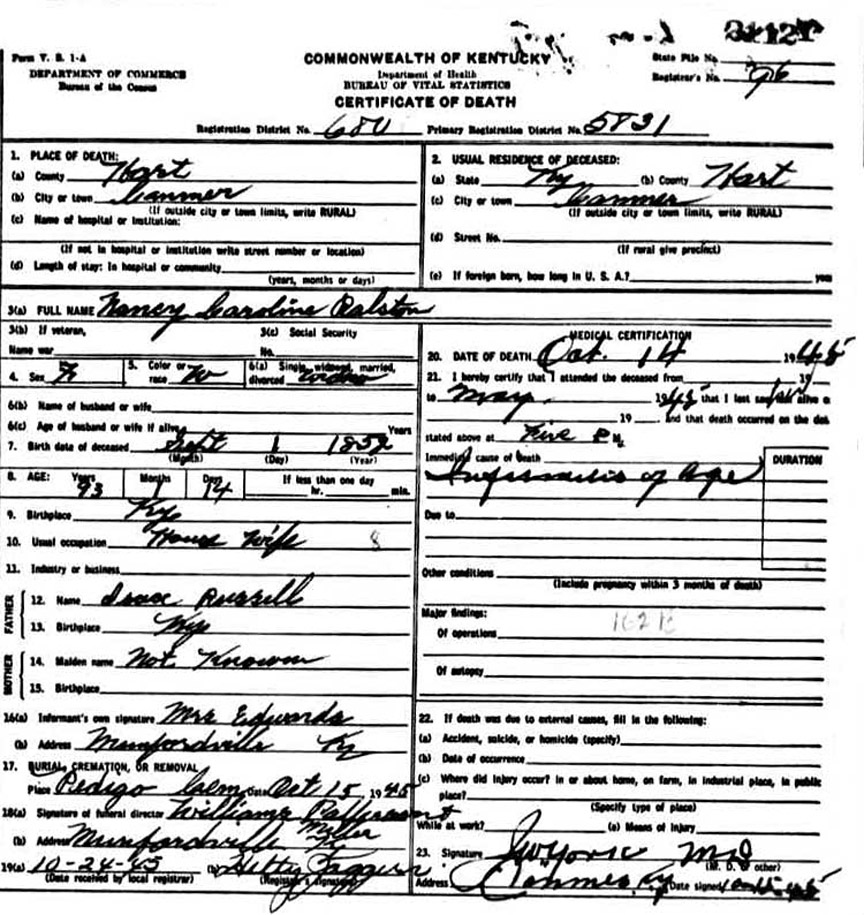 Form V. S. 1-A
COMMONWEALTH OF KENTUCKY
State File No.
DEPARTMENT OF COMMERCE
Department of Health
Registrar's No. 96
Bureau of the Census
BUREAU OF VITAL STATISTICS
CERTIFICATE OF DEATH
Registration District No. 680 Primary Registration District No. 5831
1. PLACE OF DEATH:
(a) County Hart
(b) City or town Canmer
(If outside city or town limits, write RURAL)
(c) Name of hospital or institution:
(If not in hospital or institution write street number or location)
(d) Length of stay: In hospital or community
(years, months or days)
2. USUAL RESIDENCE OF DECEASED:
(a) State Ky (b) County Hart
(c) City or town Canmer
(If outside city or town limits, write RURAL)
(d) Street No.
(If rural give precinct)
(e) If foreign born, how long in U. S. A.? years
3(a) FULL NAME Nancy Caroline Ralston
3(b) If veteran, 3(c) Social Security
Name war No.
4. Sex F 5. Color or race W 6(a) Single, widowed, married, divorced widow
6(b) Name of husband or wife
6(c) Age of husband or wife if alive Years
7. Birth date of deceased Sept 1 1852
(Month) (Day) (Year)
8. AGE: Years Months Days If less than one day
93 1 14 hr. min.
9. Birthplace Ky
10. Usual occupation House Wife 8
11. Industry or business
FATHER
12. Name Isaac Russell
13. Birthplace Ky
MOTHER
14. Maiden name Not Known
15. Birthplace
16(a) Informant's own signature Mrs Edwards
(b) Address Munfordville Ky
17. BURIAL, CREMATION, OR REMOVAL
Place Pedigo Cem Date Oct 15 1945
18(a) Signature of funeral director Williams
Miller
(b) Address Munfordville Ky
19(a) 10-24-45 (b) Hetty
(Date received by local registrar) (Registrar's signature)
MEDICAL CERTIFICATION
20. DATE OF DEATH Oct. 14 1945
21. I hereby certify that I attended the deceased from 19
to May 1945 that I last saw alive o
19 And that death occurred on the dat
stated above at Five P M.
Immediate cause of death
DURATION
Infirmities of Age
Due to
Other conditions
(Include pregnancy within 3 months of death)
Major findings:
Of operations 162 B
Of autopsy
22. If death was due to external causes, fill in the following:
(a) Accident, suicide, or homicide (specify)
(b) Date of occurrence
(c) Where did injury occur? In or about home, on farm, in industrial place, in public
place?
(Specify type of place)
While at work? (e) Means of Injury
23. Signature MD
(M. D. or other)
Address Canmer, Ky Date signed